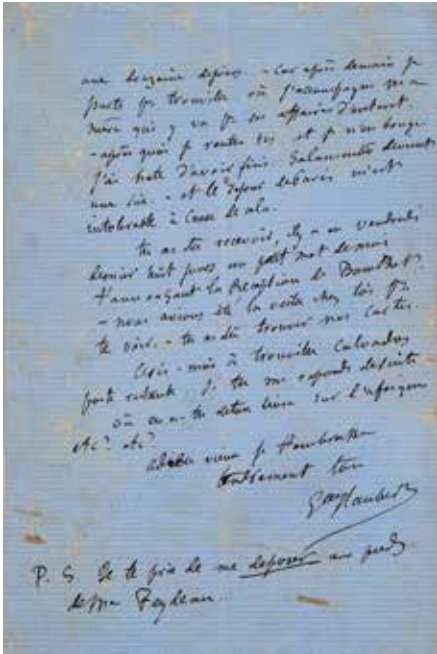 une douzaine depuis. - Car après demain je
parts pr Trouville où j'accompagne ma
mère qui y va pr ses affaires d'intérêt
- après quoi je rentre ici et je n'en bouge
J'ai hate d'avoir fini. Salammbô devient
une scie. - et le séjour de Paris m'est
intolérable à cause de cela.
tu as dû recevoir, il y a eu vendredi
dernier huit jours un petit mot de moi
t'annonçant la Réception de Bouilhet.
- nous avons été la veille chez toi pr
te voir. - tu as dû trouver nos cartes.
Ecris-moi à Trouville Calvados
poste restante. Si tu me réponds de suite
où en es-tu de ton livre sur
etc? etc?
adieu vieux je t'embrasse
tout à toi
Gve Flaubert
P. S Je te prie de me déposer aux pieds
de Mme Feydeau..